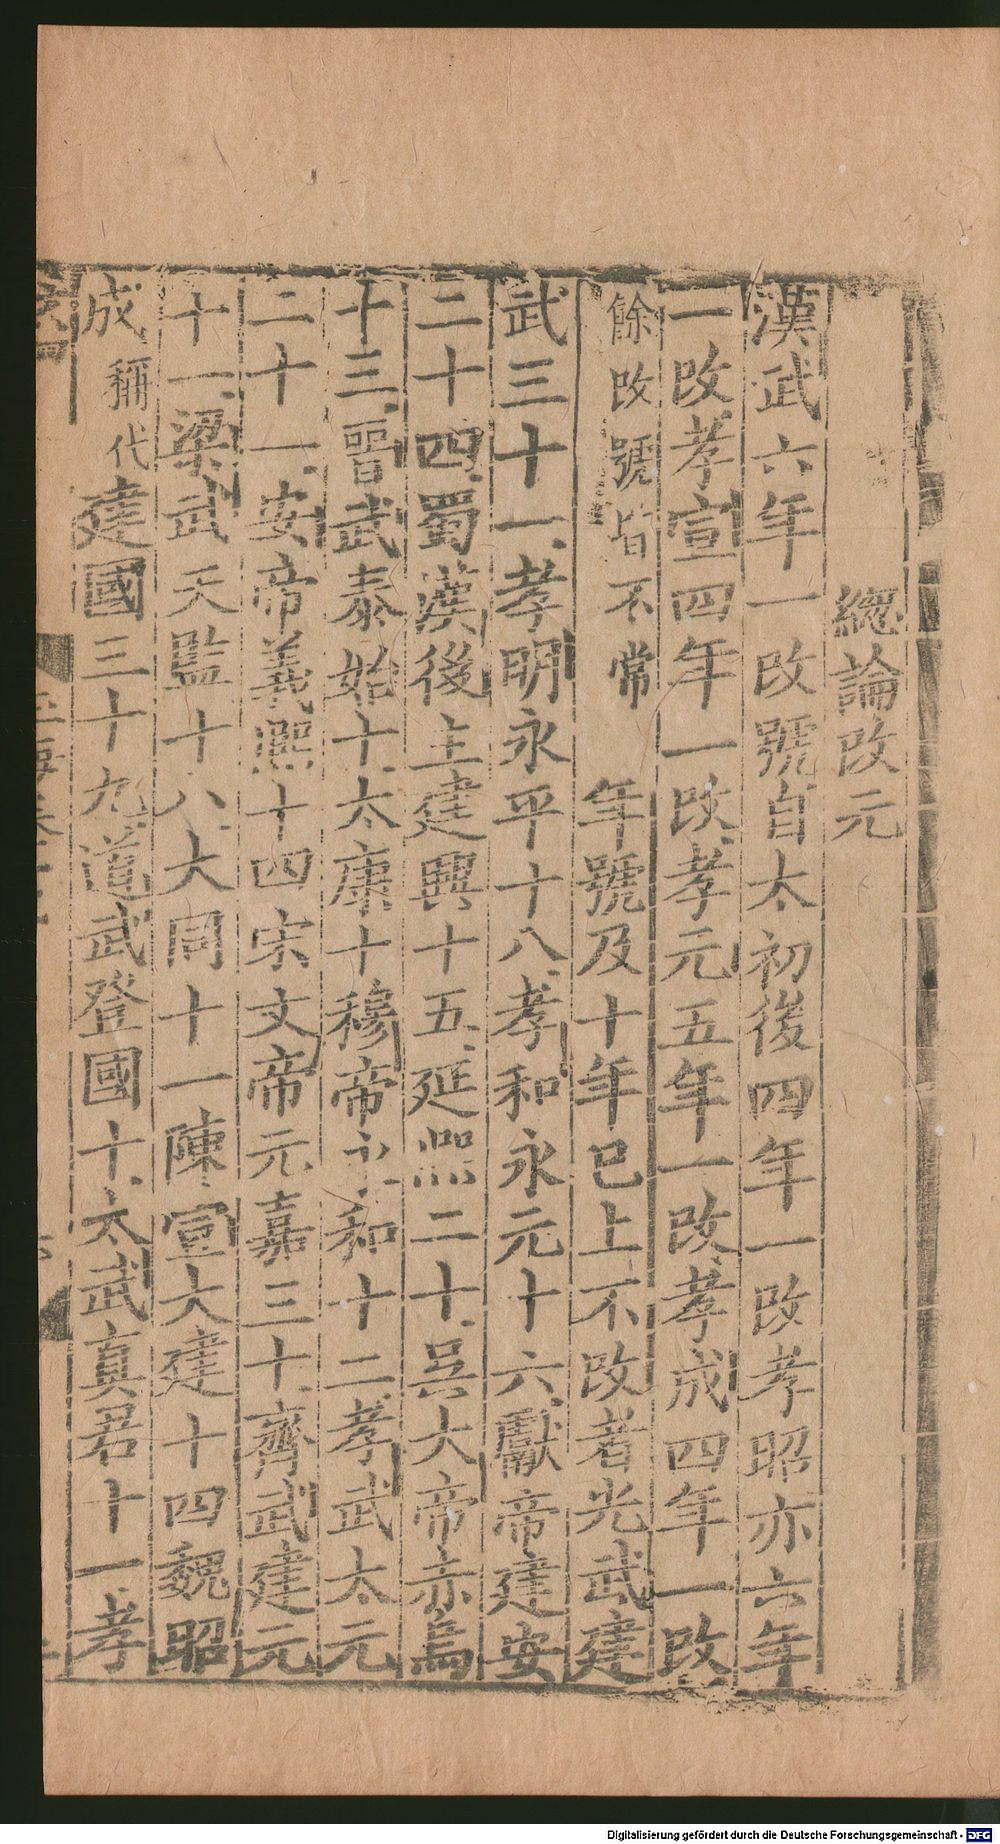 總論改元
漢武六年一改號自太初後四年一改孝昭亦六年
一改孝宣四年一改孝元五年一改孝成四年一改
餘改號皆不常 年號及十年已上不改者光武建
武三十一孝明永平十八孝和永元十六獻帝建安
二十四蜀漢後主建興十五延熙二十吳大帝赤烏
十三晉武泰始十太康十穆帝永和十二孝武太元
二十一安帝義熙十四宋文帝元嘉三十齊武建元
十一梁武天監十八大同十一陳宣大建十四魏昭
成稱代建國三十九道武登國十太武真君十一孝
Digitalisierung gefördert durch die Deutsche Forschungsgemeinschaft - DFG